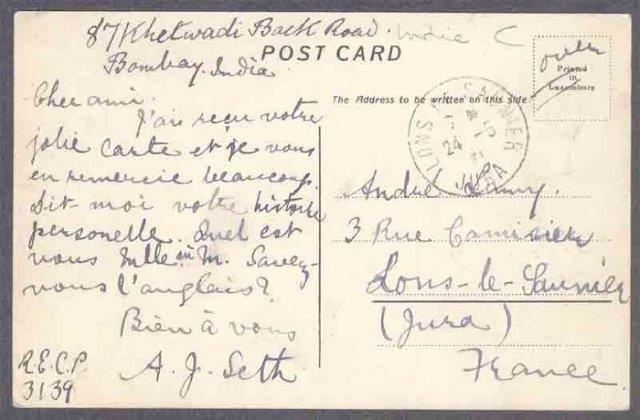 87 Khetwadi Back Road. Indie C
POST CARD
Bombay. India
over
Printed
in
Luxemburg
The Address to be written on this side
LONS SAUNIER
24
JURA
Cher ami.
J'ai reçu votre
jolie carte et je vous
en remercie beaucoup.
Dit-moi votre histoire
personelle. Quel est
vous Mlle. ou M. Savez-
vous l'anglais?
Bien à vous
A. J. Seth
R.E.C.P.
3139
André
3 Rue
Lons-le-Saunier
(Jura)
France